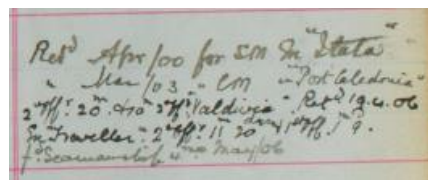 Retd Apr/00 for 2M In "Itata"
" Mar/03 " CM " "Port Caledonia"
2nd Off. 20 3rd Off. Valdivia. Retd 19.4.06
In "Traveller" 2nd Off. 11 20 days 1st Off. 1 9.
f. Seamanship May/06